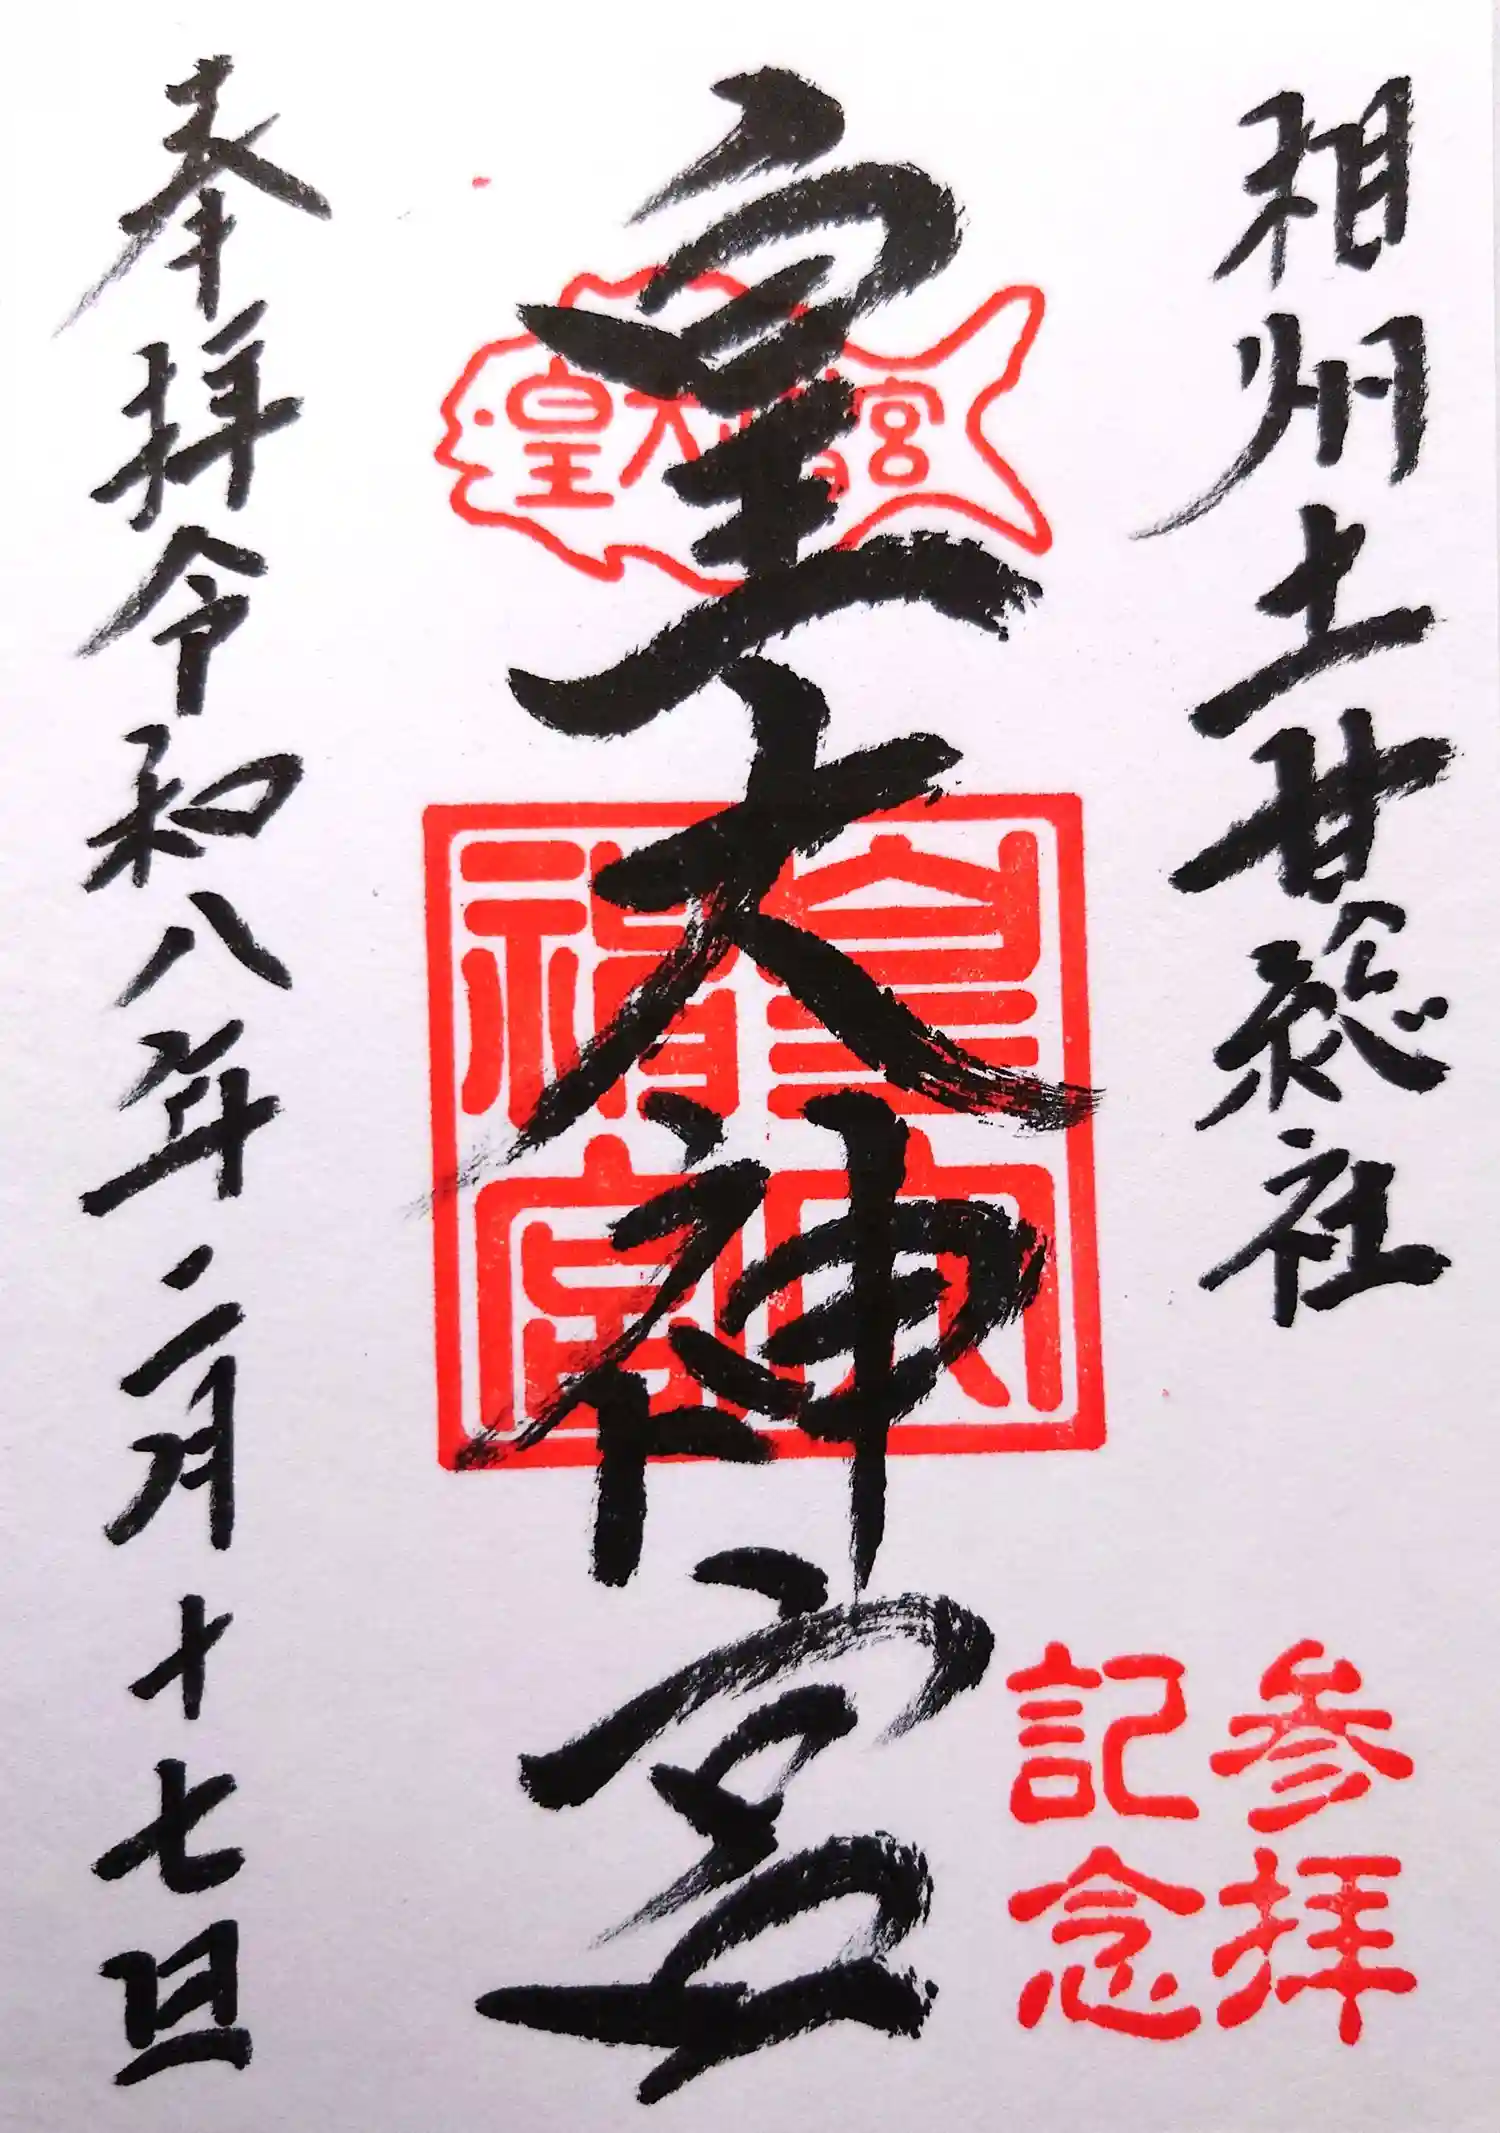 相州土甘総社
皇大神宮
皇大神宮
皇大神宮
参拝
記念
奉拝令和八年二月十七旦